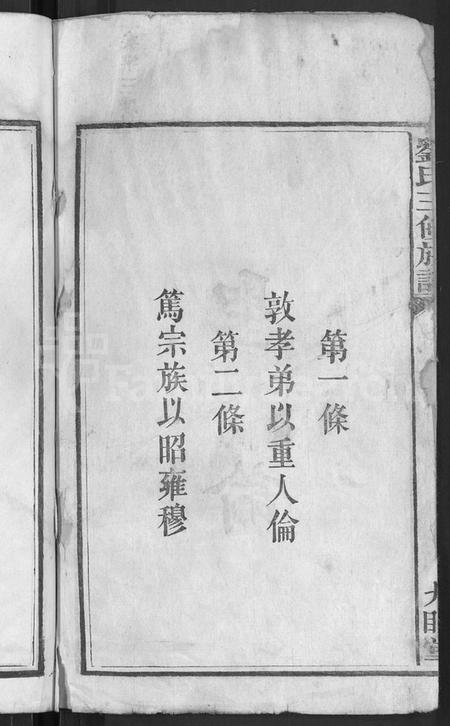 第一條
敦孝弟以重人倫
第二條
篤宗族以昭雍穆
劉氏三修族譜